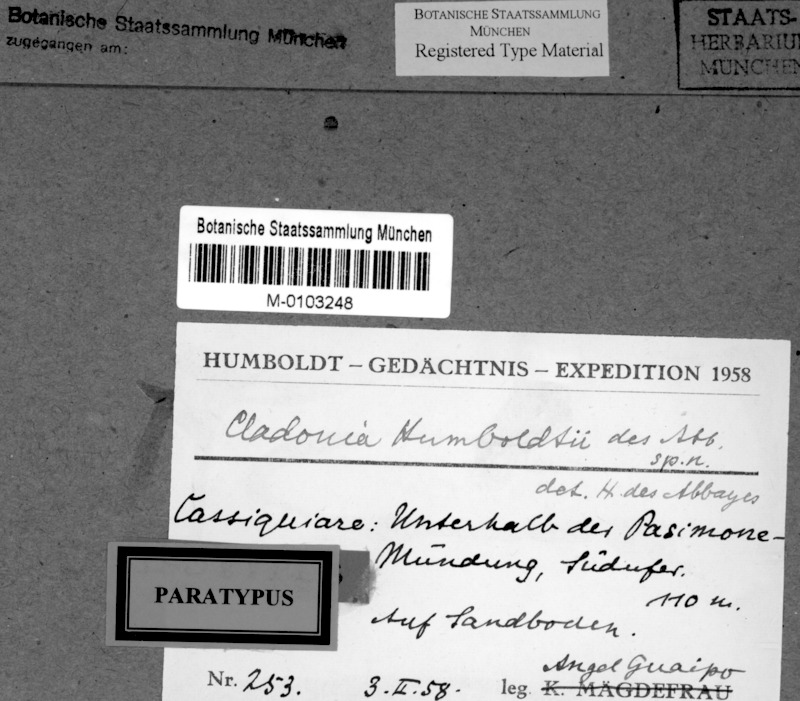 Botanische Staatssammlung München
zugegangen am:
BOTANISCHE STAATSSAMMLUNG
MÜNCHEN
Registered Type Material
STAATS-
HERBARIU
MÜNCHEN
Botanische Staatssammlung München
M-0103248
HUMBOLDT – GEDÄCHTNIS – EXPEDITION 1958
Cladonia Humboldtii des Abb.
sp.n.
det. H. des Abbayes
Cassiquiare: Unterhalb der Pasimone-
Mündung, Südufer.
110 m.
Auf Sandboden.
PARATYPUS
Angel Guaipo
Nr. 253. 3.II.58. leg. K. MÄGDEFRAU